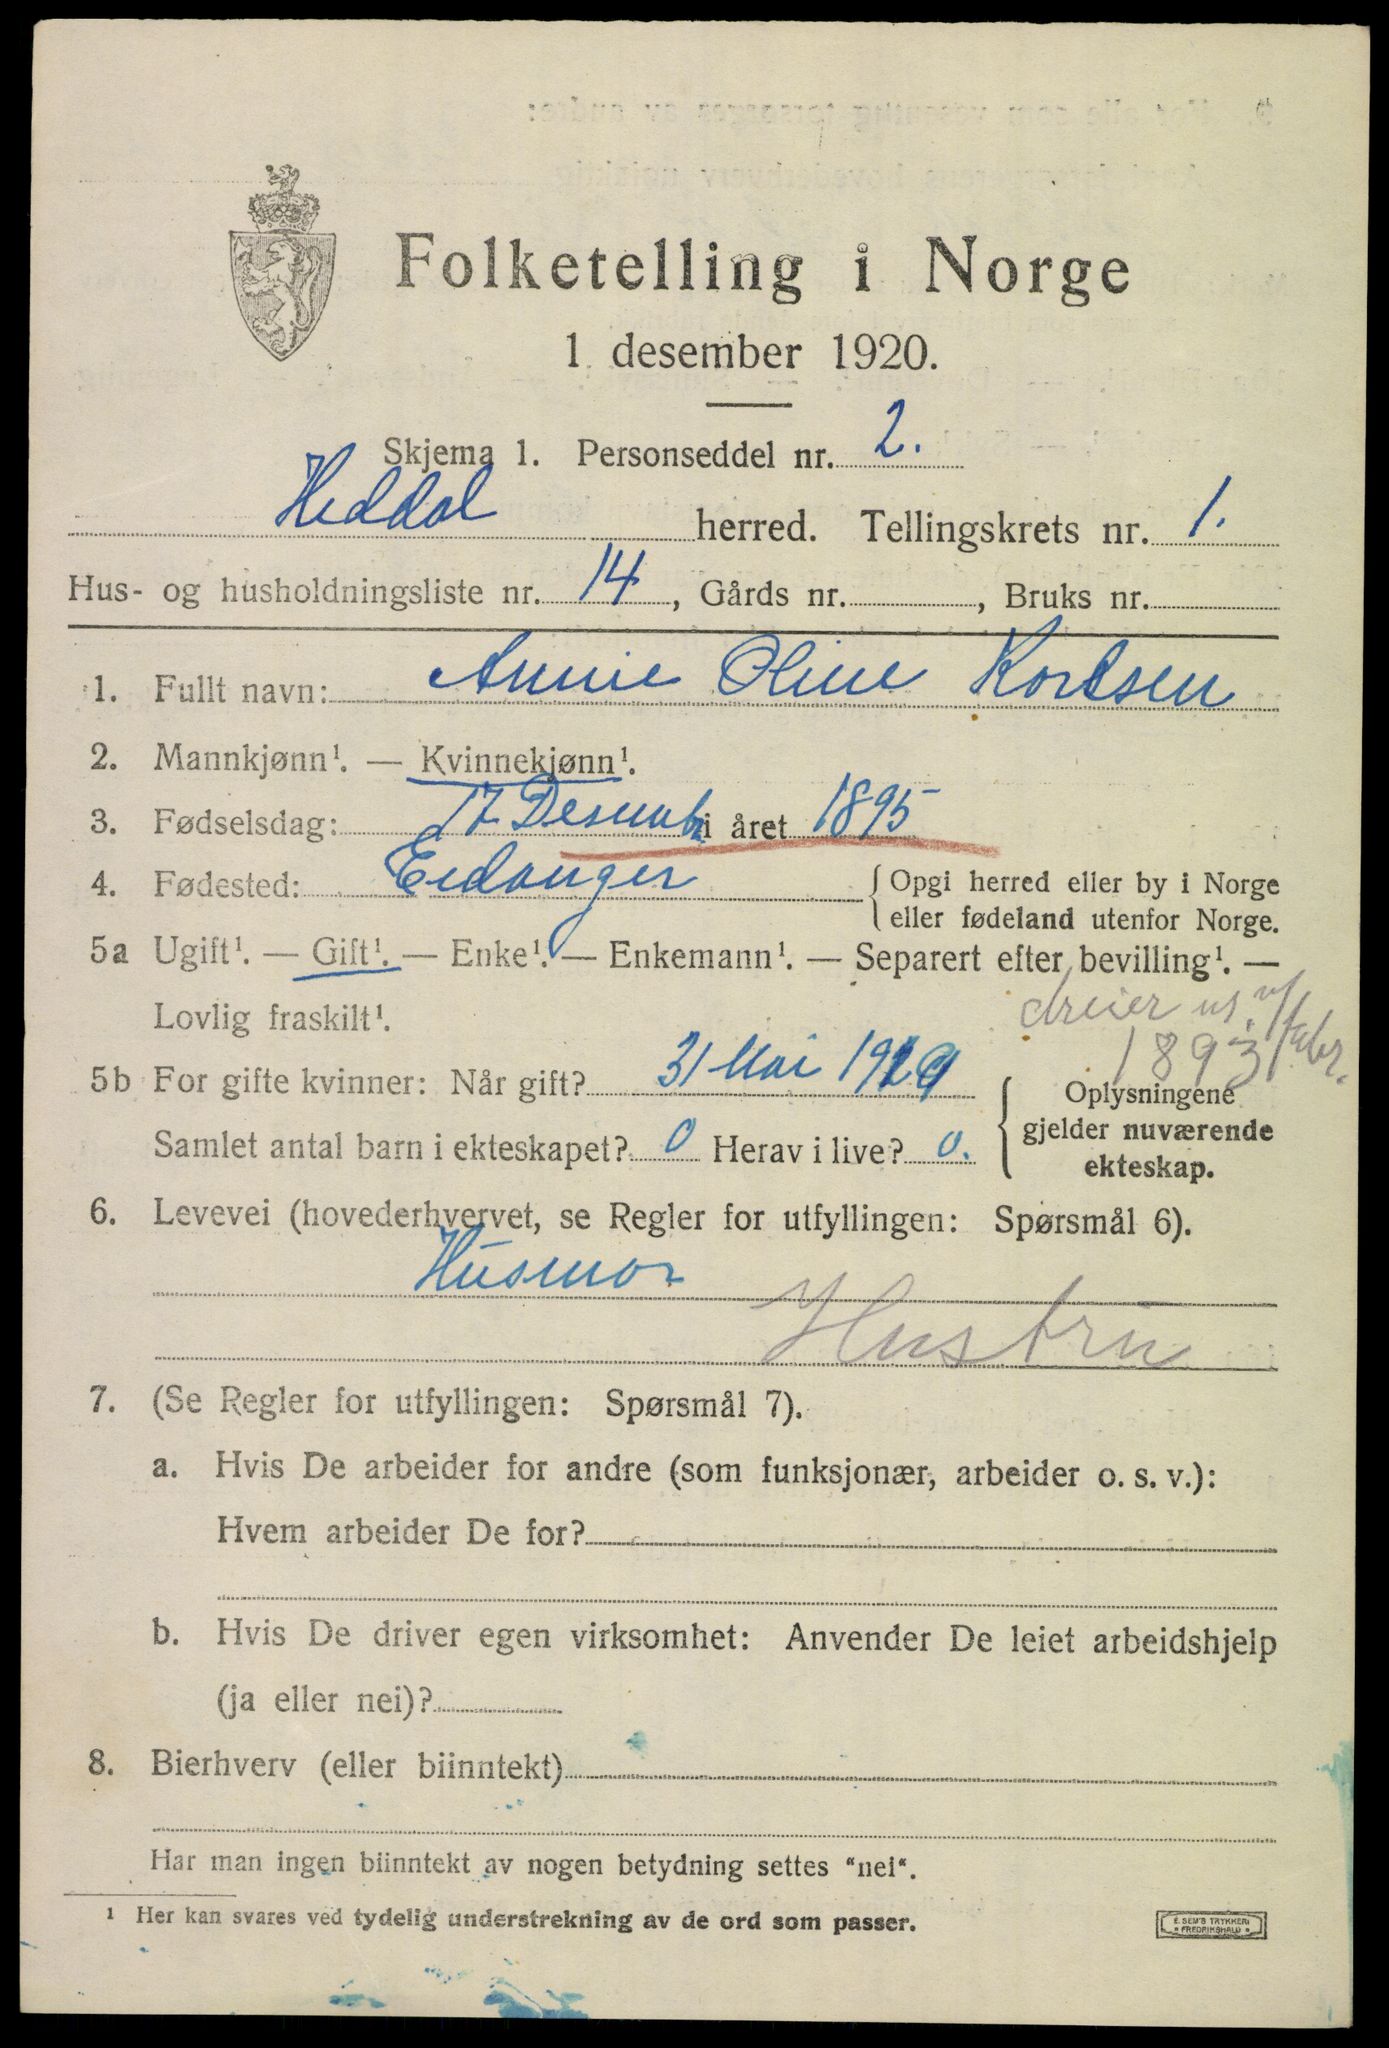 Folketelling i Norge
1 desember 1920.
Skjema 1. Personseddel nr. 2.
Heddal herred. Tellingskrets nr. 1.
Hus- og husholdningsliste nr. 14, Gårds nr. , Bruks nr.
1. Fullt navn: Annie Oline Kortsen
2. Mannkjønn¹. — Kvinnekjønn¹.
3. Fødselsdag: 17 Desemb i året 1895
4. Fødested: Eidanger {Opgi herred eller by i Norge
eller fødeland utenfor Norge.
5a Ugift¹. — Gift¹. — Enke¹. — Enkemann¹. — Separert efter bevilling¹. —
Lovlig fraskilt¹.
dreier
1893
5b For gifte kvinner: Når gift? 31 Mai 1920
Samlet antal barn i ekteskapet? 0 Herav i live? 0.
Oplysningene
gjelder nuværende
ekteskap.
6. Levevei (hovederhvervet, se Regler for utfyllingen: Spørsmål 6).
Husmor
Hustru
7. (Se Regler for utfyllingen: Spørsmål 7).
a. Hvis De arbeider for andre (som funksjonær, arbeider o. s. v.):
Hvem arbeider De for?
b. Hvis De driver egen virksomhet: Anvender De leiet arbeidshjelp
(ja eller nei)?
8. Bierhverv (eller biinntekt)
Har man ingen biinntekt av nogen betydning settes "nei".
¹ Her kan svares ved tydelig understrekning av de ord som passer.
E. SEM'S TRYKKERI
FREDRIKSHALD